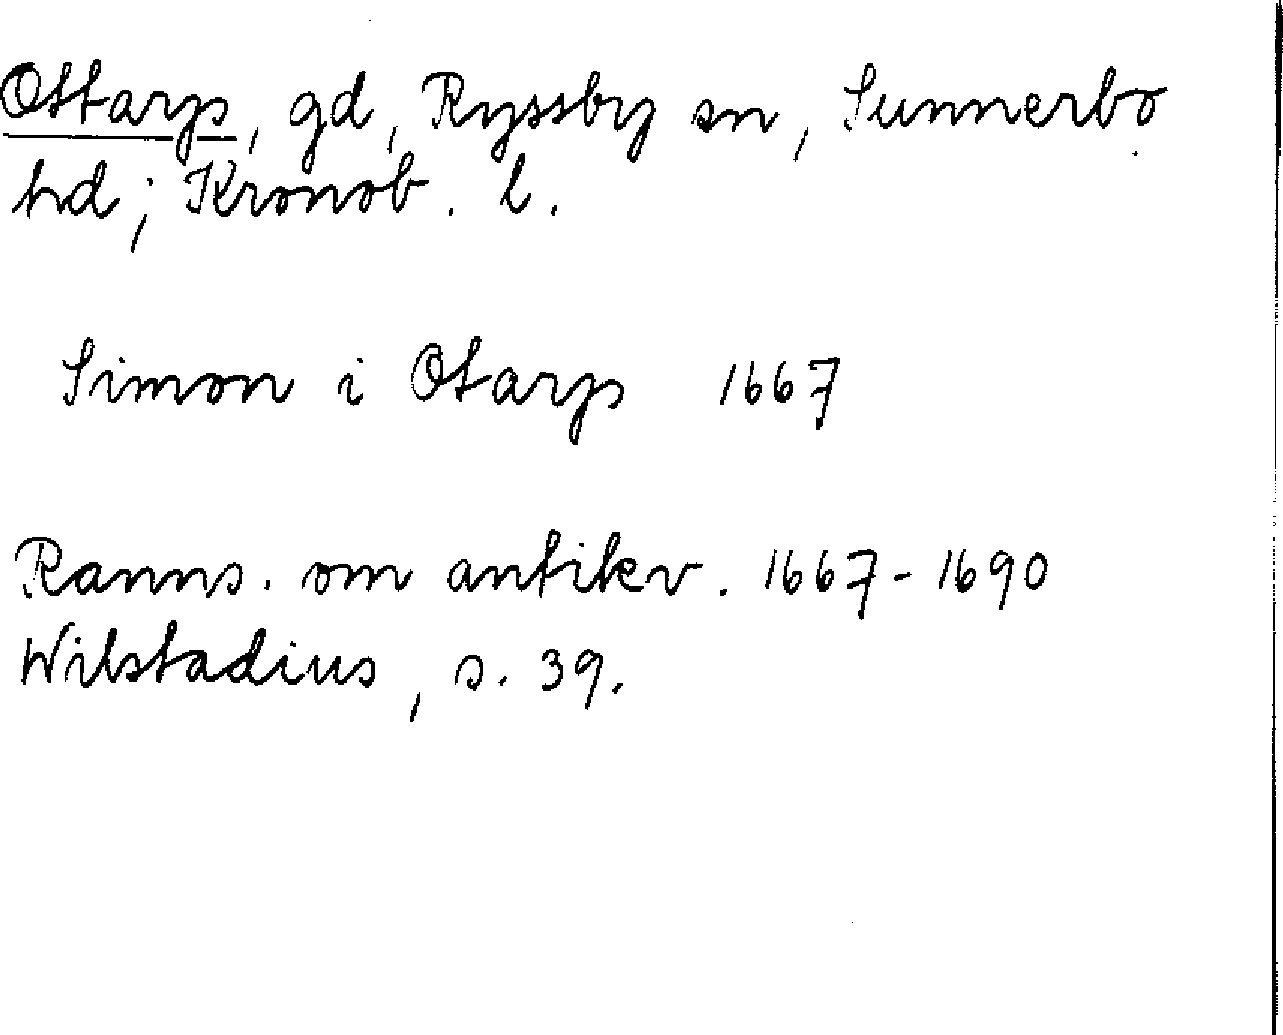 Ottarp, gd, Ryssby sn, Sunnerbo
hd; Kronob. l.
Simon i Otarp 1667
Ranns. om antikv. 1667-1690
Wilstadius, s. 39.